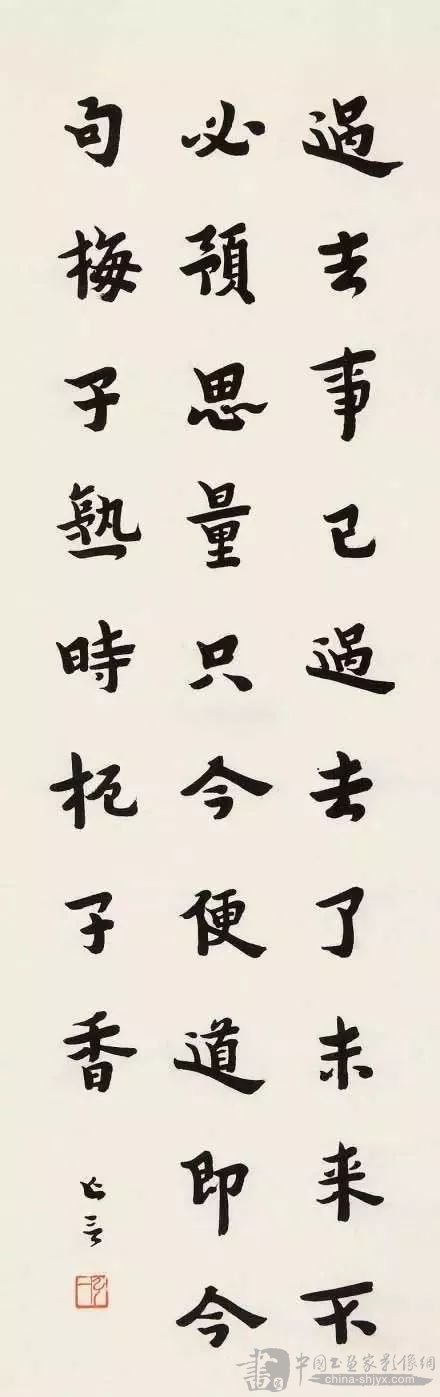 過去事已過去了未来不
必預思量只今便道即今
句梅子熟時栀子香
中国书画家影像網
china-shjyx.com